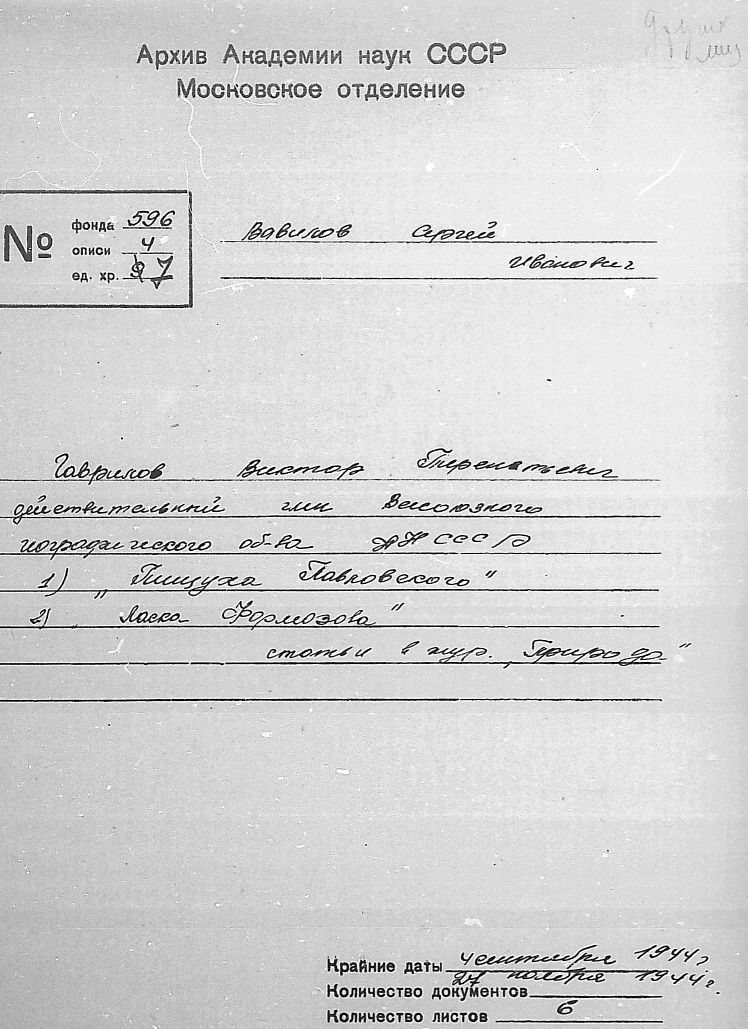 Архив Академии наук СССР
Московское отделение
№
фонда 596
описи 4
ед. хр. 7
Вавилов Сергей
Иванович
Гаврилов Виктор
действительный член Всесоюзного
географического об-ва АН СССР
1) „Пищуха Павловского“
2) „Ласка Формозова“
статьи в жур. „Природа“
Крайние даты 4 сентября 1944 г
27 ноября 1944 г.
Количество документов
Количество листов 6